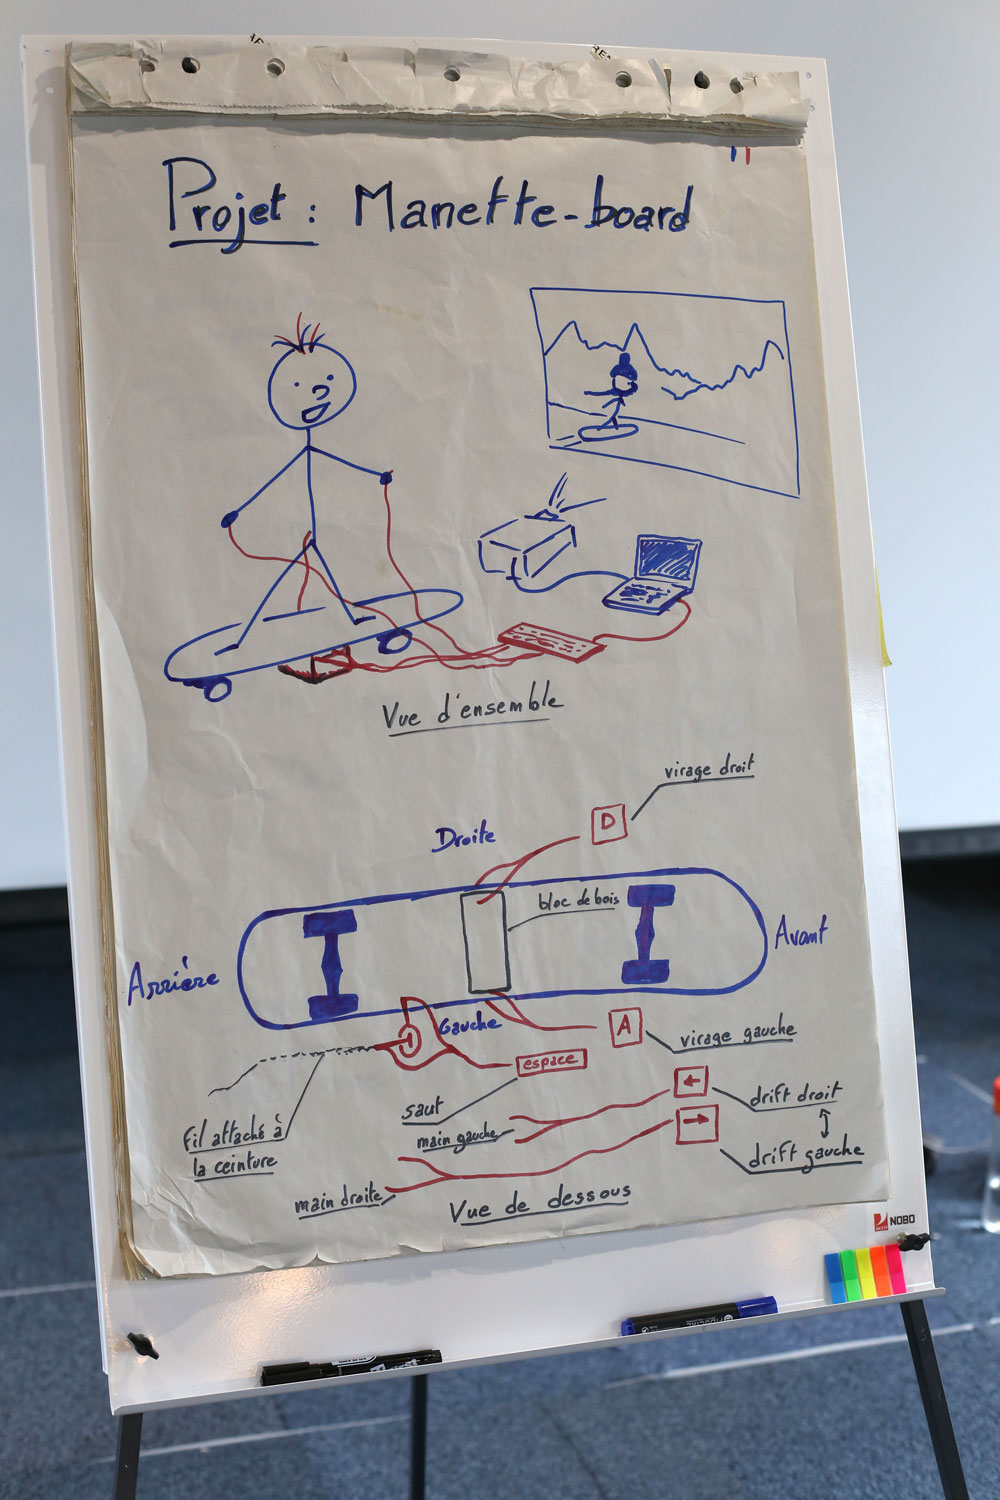 Projet : Manette-board
Vue d'ensemble
virage droit
D
Droite
bloc de bois
Avant
Arrière
Gauche
A
virage gauche
espace
saut
←
drift droit
main gauche
→
drift gauche
fil attaché à
la ceinture
main droite
Vue de dessous
NOBO